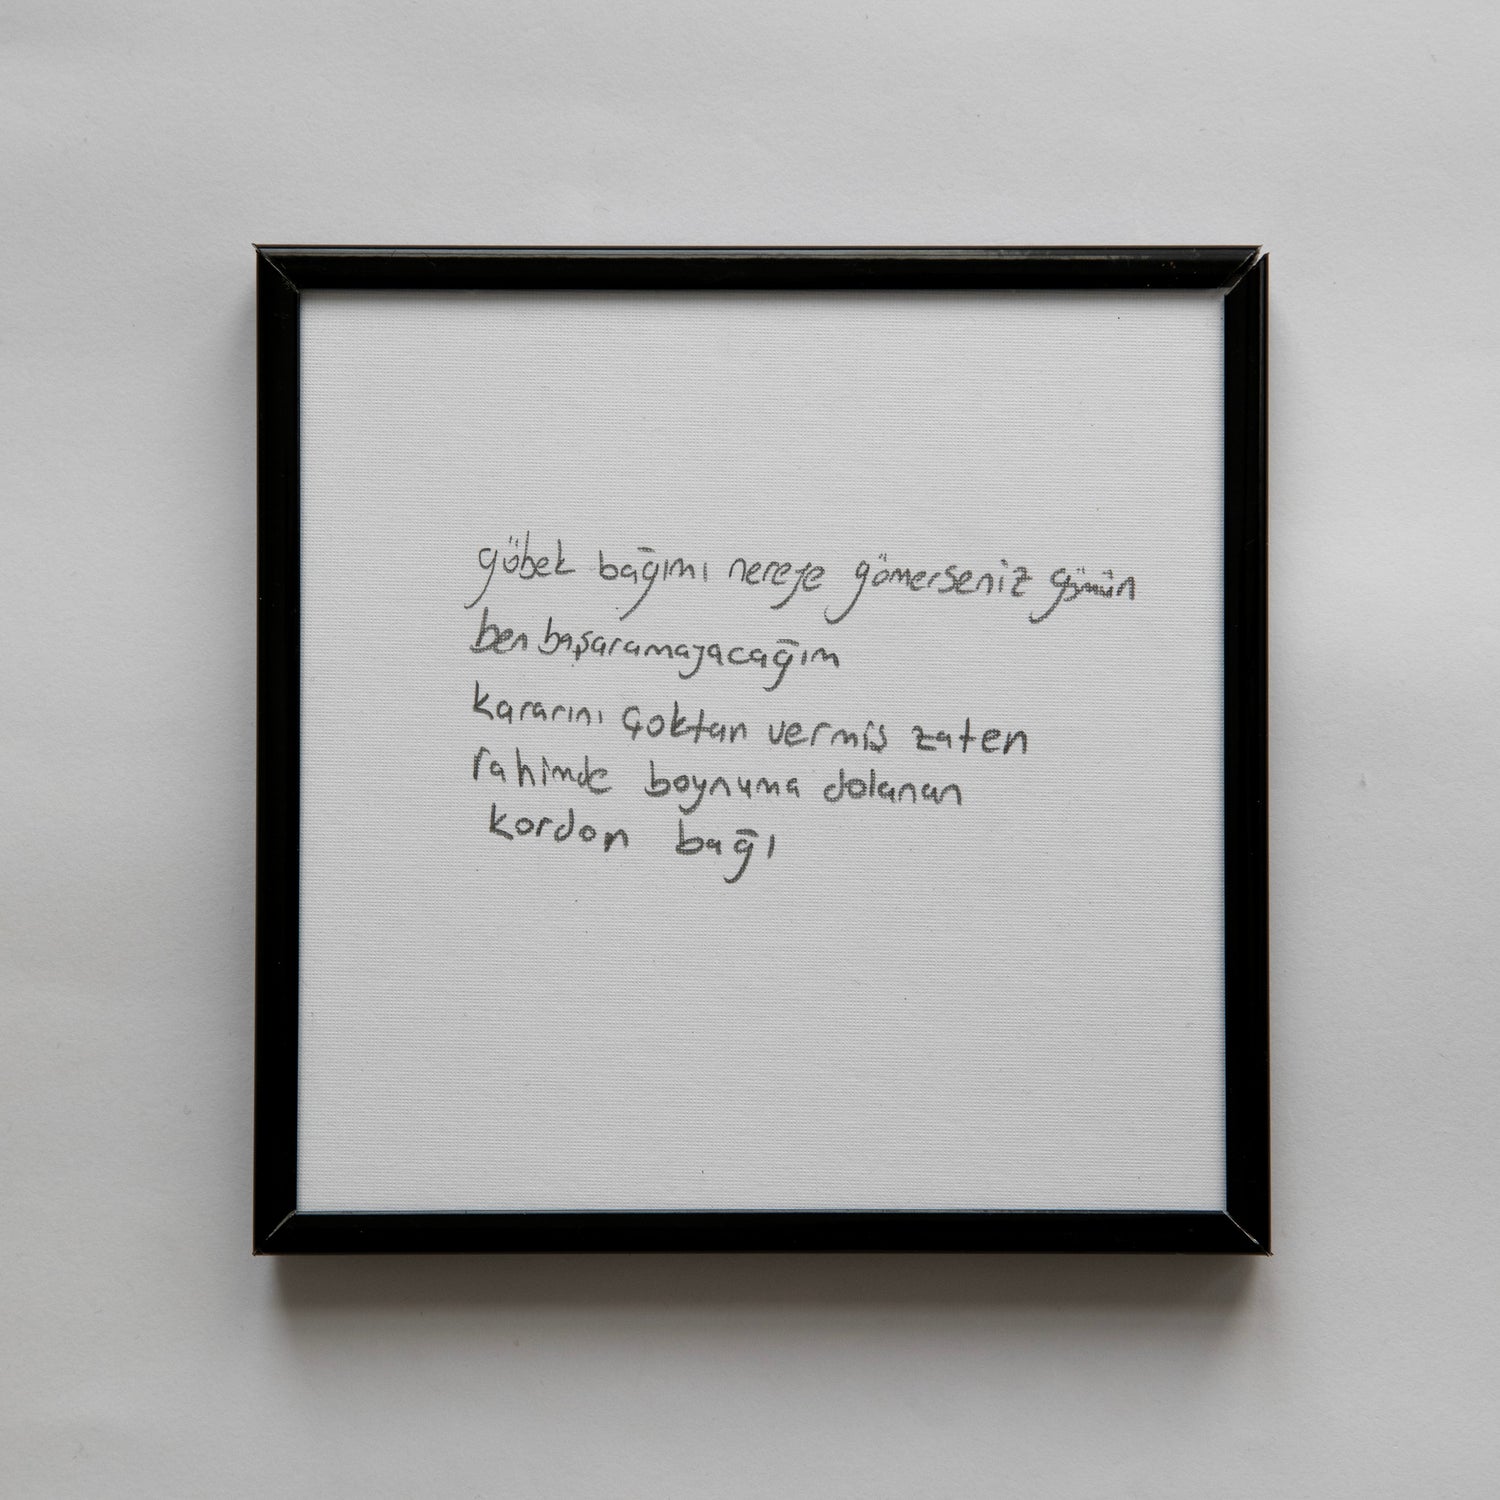 göbek bağımı nereye gömerseniz gömün
ben başaramayacağım
kararını çoktan vermiş zaten
rahimde boynuma dolanan
kordon bağı